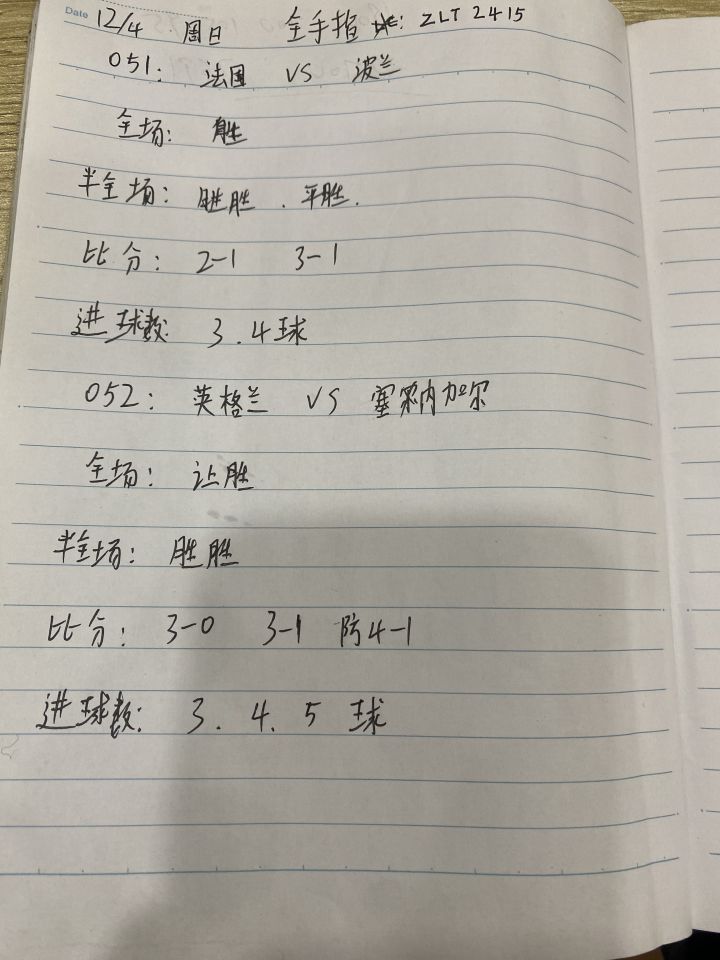 Date 12/4 周日 全手指: ZLT 2415
051: 法国 VS 波兰
全场: 胜
半全场: 胜胜 . 平胜.
比分: 2-1 3-1
进球数: 3.4球
052: 英格兰 VS 塞内加尔
全场: 让胜
半全场: 胜胜
比分: 3-0 3-1 防4-1
进球数: 3. 4. 5 球